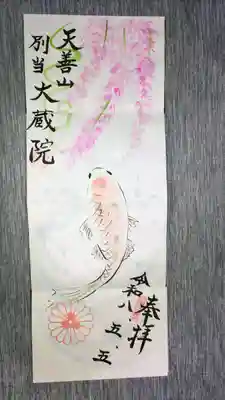 奉拝
令和八、五、五
天善山
別当大蔵院